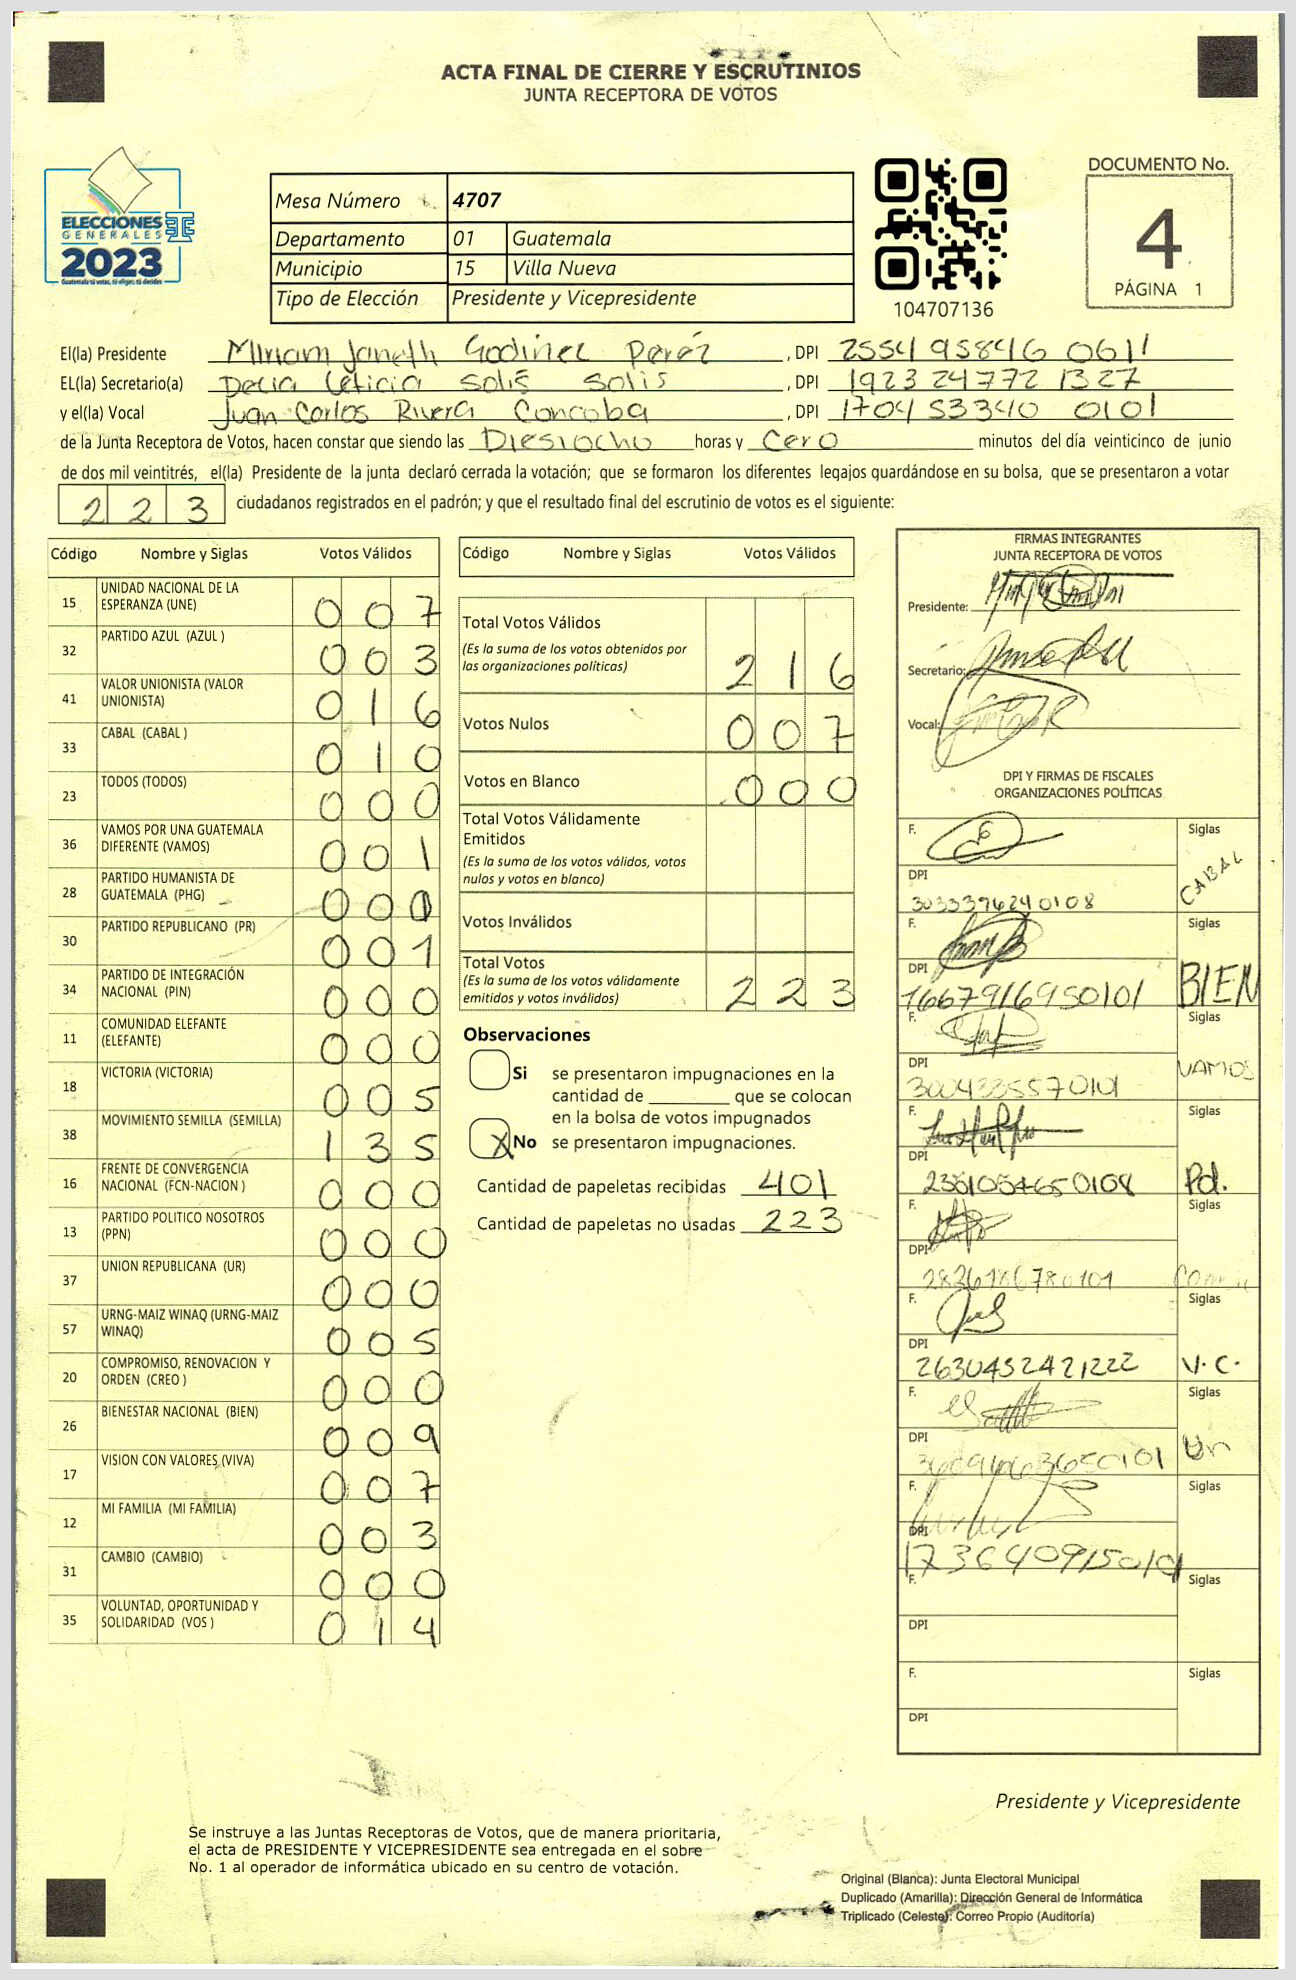 ACTA FINAL DE CIERRE Y ESCRUTINIOS
JUNTA RECEPTORA DE VOTOS
ELECCIONES
GENERALES
2023
Guatemala tú votas, tú eliges, tú decides
Mesa Número 4707
Departamento 01 Guatemala
Municipio 15 Villa Nueva
Tipo de Elección Presidente y Vicepresidente
104707136
DOCUMENTO No.
4
PÁGINA 1
El(la) Presidente Miriam Janeth Godinez Peréz , DPI 2554 95846 0611
EL(la) Secretario(a) Delia Leticia Solis Solis , DPI 1923 24772 1327
y el(la) Vocal Juan Carlos Rivera Concoba , DPI 1704 53340 0101
de la Junta Receptora de Votos, hacen constar que siendo las Diesiocho horas y Cero minutos del día veinticinco de junio
de dos mil veintitrés, el(la) Presidente de la junta declaró cerrada la votación; que se formaron los diferentes legajos quardándose en su bolsa, que se presentaron a votar
223 ciudadanos registrados en el padrón; y que el resultado final del escrutinio de votos es el siguiente:
Código Nombre y Siglas Votos Válidos
15 UNIDAD NACIONAL DE LA ESPERANZA (UNE) 007
32 PARTIDO AZUL (AZUL ) 003
41 VALOR UNIONISTA (VALOR UNIONISTA) 016
33 CABAL (CABAL ) 010
23 TODOS (TODOS) 000
36 VAMOS POR UNA GUATEMALA DIFERENTE (VAMOS) 001
28 PARTIDO HUMANISTA DE GUATEMALA (PHG) 00
30 PARTIDO REPUBLICANO (PR) 001
34 PARTIDO DE INTEGRACIÓN NACIONAL (PIN) 000
11 COMUNIDAD ELEFANTE (ELEFANTE) 000
18 VICTORIA (VICTORIA) 005
38 MOVIMIENTO SEMILLA (SEMILLA) 135
16 FRENTE DE CONVERGENCIA NACIONAL (FCN-NACION ) 000
13 PARTIDO POLITICO NOSOTROS (PPN) 000
37 UNION REPUBLICANA (UR) 000
57 URNG-MAIZ WINAQ (URNG-MAIZ WINAQ) 005
20 COMPROMISO, RENOVACION Y ORDEN (CREO ) 000
26 BIENESTAR NACIONAL (BIEN) 009
17 VISION CON VALORES (VIVA) 007
12 MI FAMILIA (MI FAMILIA) 003
31 CAMBIO (CAMBIO) 000
35 VOLUNTAD, OPORTUNIDAD Y SOLIDARIDAD (VOS ) 014
Código Nombre y Siglas Votos Válidos
Total Votos Válidos 216
(Es la suma de los votos obtenidos por
las organizaciones políticas)
Votos Nulos 007
Votos en Blanco 000
Total Votos Válidamente
Emitidos
(Es la suma de los votos válidos, votos
nulos y votos en blanco)
Votos Inválidos
Total Votos 223
(Es la suma de los votos válidamente
emitidos y votos inválidos)
Observaciones
Si se presentaron impugnaciones en la
cantidad de ________ que se colocan
en la bolsa de votos impugnados
X No se presentaron impugnaciones.
Cantidad de papeletas recibidas 401
Cantidad de papeletas no usadas 223
FIRMAS INTEGRANTES
JUNTA RECEPTORA DE VOTOS
Presidente:
Secretario:
Vocal:
DPI Y FIRMAS DE FISCALES
ORGANIZACIONES POLÍTICAS
F. Siglas
CABAL
DPI
F. Siglas
DPI BIEN
1667916950101
F. Siglas
DPI VAMOS
3004335570101
F. Siglas
DPI
2351054650108 Pd.
F. Siglas
DPI
F. Siglas
DPI
2630452421222 V.C.
F. Siglas
DPI
F. Siglas
DPI
F. Siglas
DPI
F. Siglas
DPI
Presidente y Vicepresidente
Se instruye a las Juntas Receptoras de Votos, que de manera prioritaria,
el acta de PRESIDENTE Y VICEPRESIDENTE sea entregada en el sobre
No. 1 al operador de informática ubicado en su centro de votación.
Original (Blanca): Junta Electoral Municipal
Duplicado (Amarilla): Dirección General de Informática
Triplicado (Celeste): Correo Propio (Auditoría)